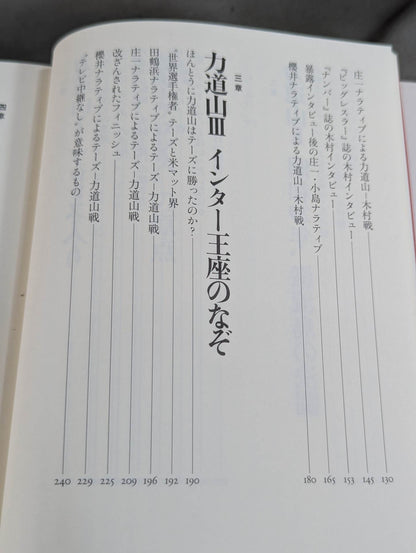 庄一ナラティブによる力道山−木村戦 130
『ビッグレスラー』誌の木村インタビュー 145
『ナンバー』誌の木村インタビュー 153
暴露インタビュー後の庄一・小島ナラティブ 165
櫻井ナラティブによる力道山−木村戦 180
三章
力道山Ⅲ インター王座のなぞ
ほんとうに力道山はテーズに勝ったのか? 190
〝世界選手権者〟テーズと米マット界 192
田鶴浜ナラティブによるテーズ−力道山戦 196
庄一ナラティブによるテーズ−力道山戦 209
改ざんされたフィニッシュ 225
櫻井ナラティブによるテーズ−力道山戦 229
〝テレビ中継なし〟が意味するもの 240
四章